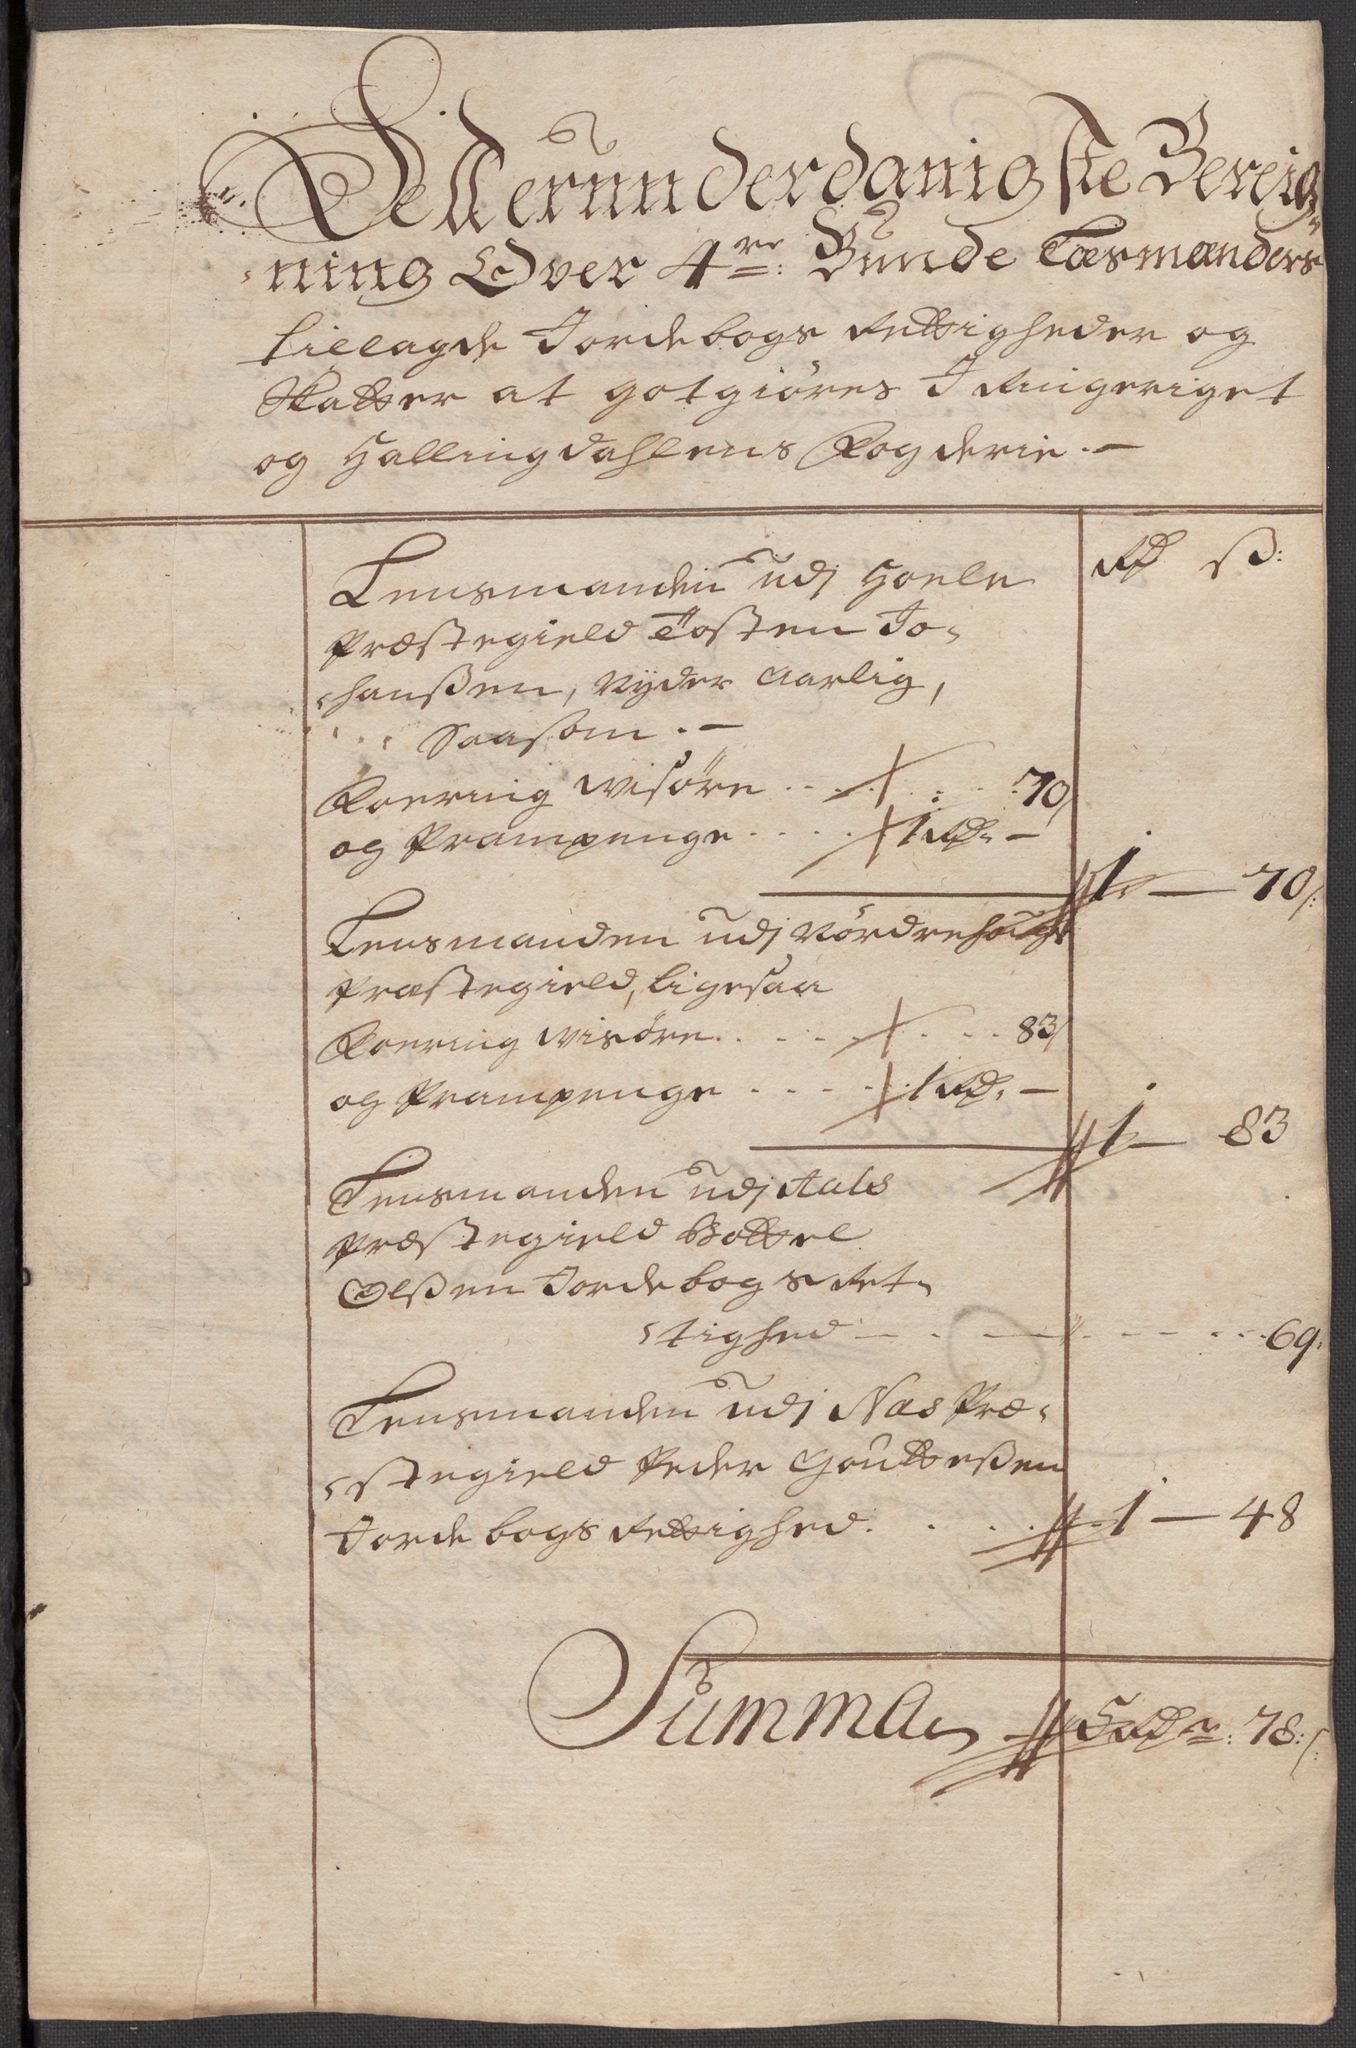 Allerunderdanigste Bereig-
ning Over 4re: Bunde Lensmænders
tillagde Jordebogs Rettigheder og
Skatter at gotgiøres I Ringeriget
og Hallingdahlens Fogderie.-
Rd ß:
Lensmanden udj Hoele
Præstegield Tosten Jo-
hanßen, Nyder Aarlig,
Saasom.-
Foering Wisøre . . . . . . 70/
og Prampenge . . . . 1 Rd. -
1 - 70/:
Lensmanden udj Nordrehougs
Præstegield, ligesaa
Foering Wisøre . . . . . . 83/
og Prampenge . . . . . 1 Rd. -
1 - 83
Lensmanden udj Aals
Præstegield Bottel
Olßen Jordebogs Ret-
tighed - . - . - . . . 69.
Lensmanden udj Næs Præ-
stegield Peder Gouttesßen
Jordebogs Rettighed. . . . . 1 - 48
Summa 5 Rdr: 78:/: